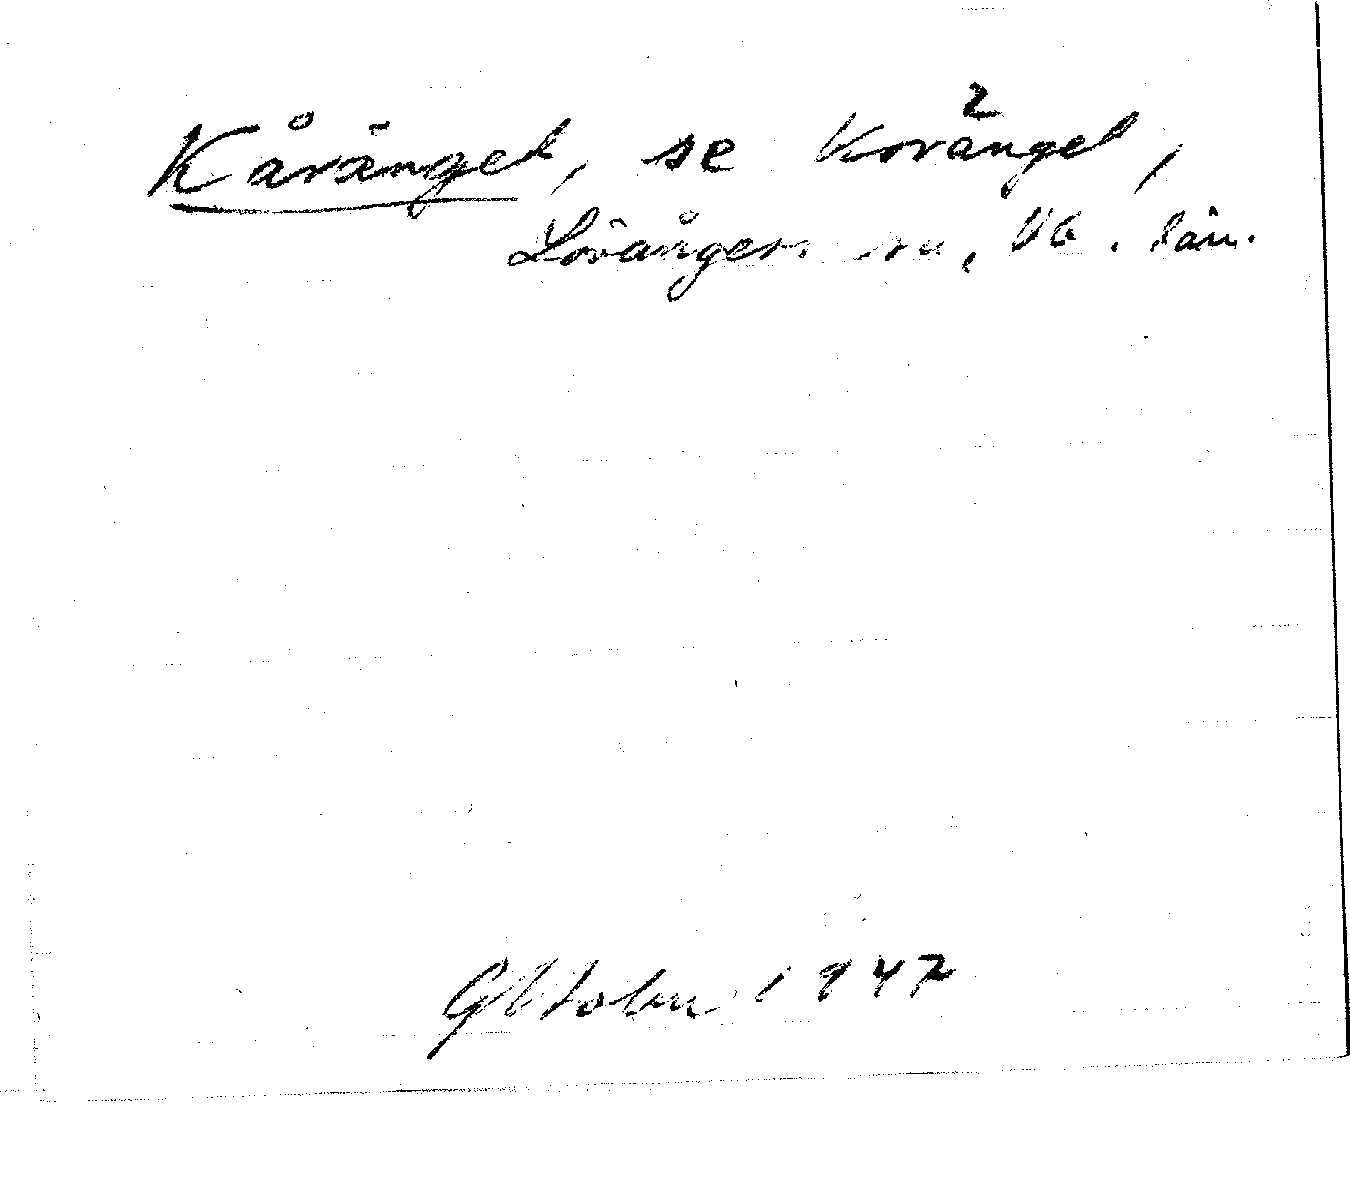 Kårängel, se Korängel,
Lövångers sn, Vb. län.
GPHolm 1947